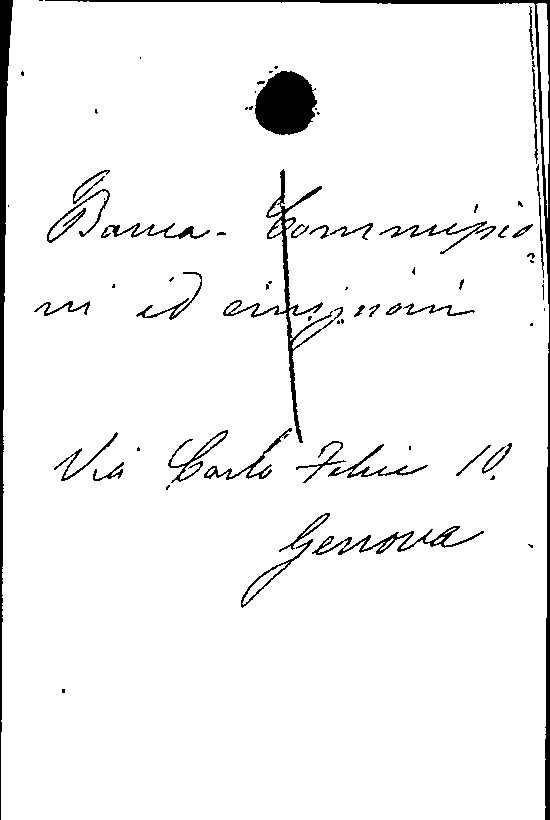 Banca - Commissio
ni ed
Via Carlo Felice 10.
Genova